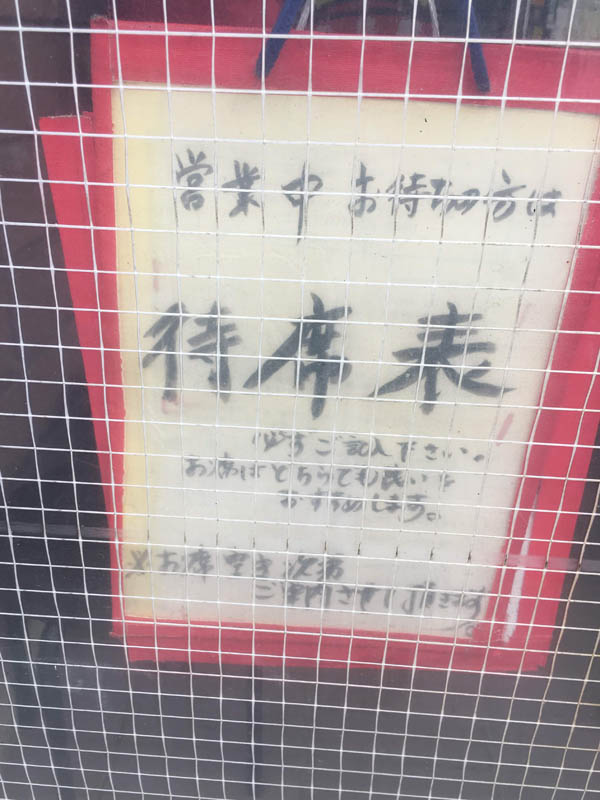 営業中 お待ちの方は
待席表
必ずご記入下さい。
お席はどちらでも良いを
おすすめします。
※お席空き次第